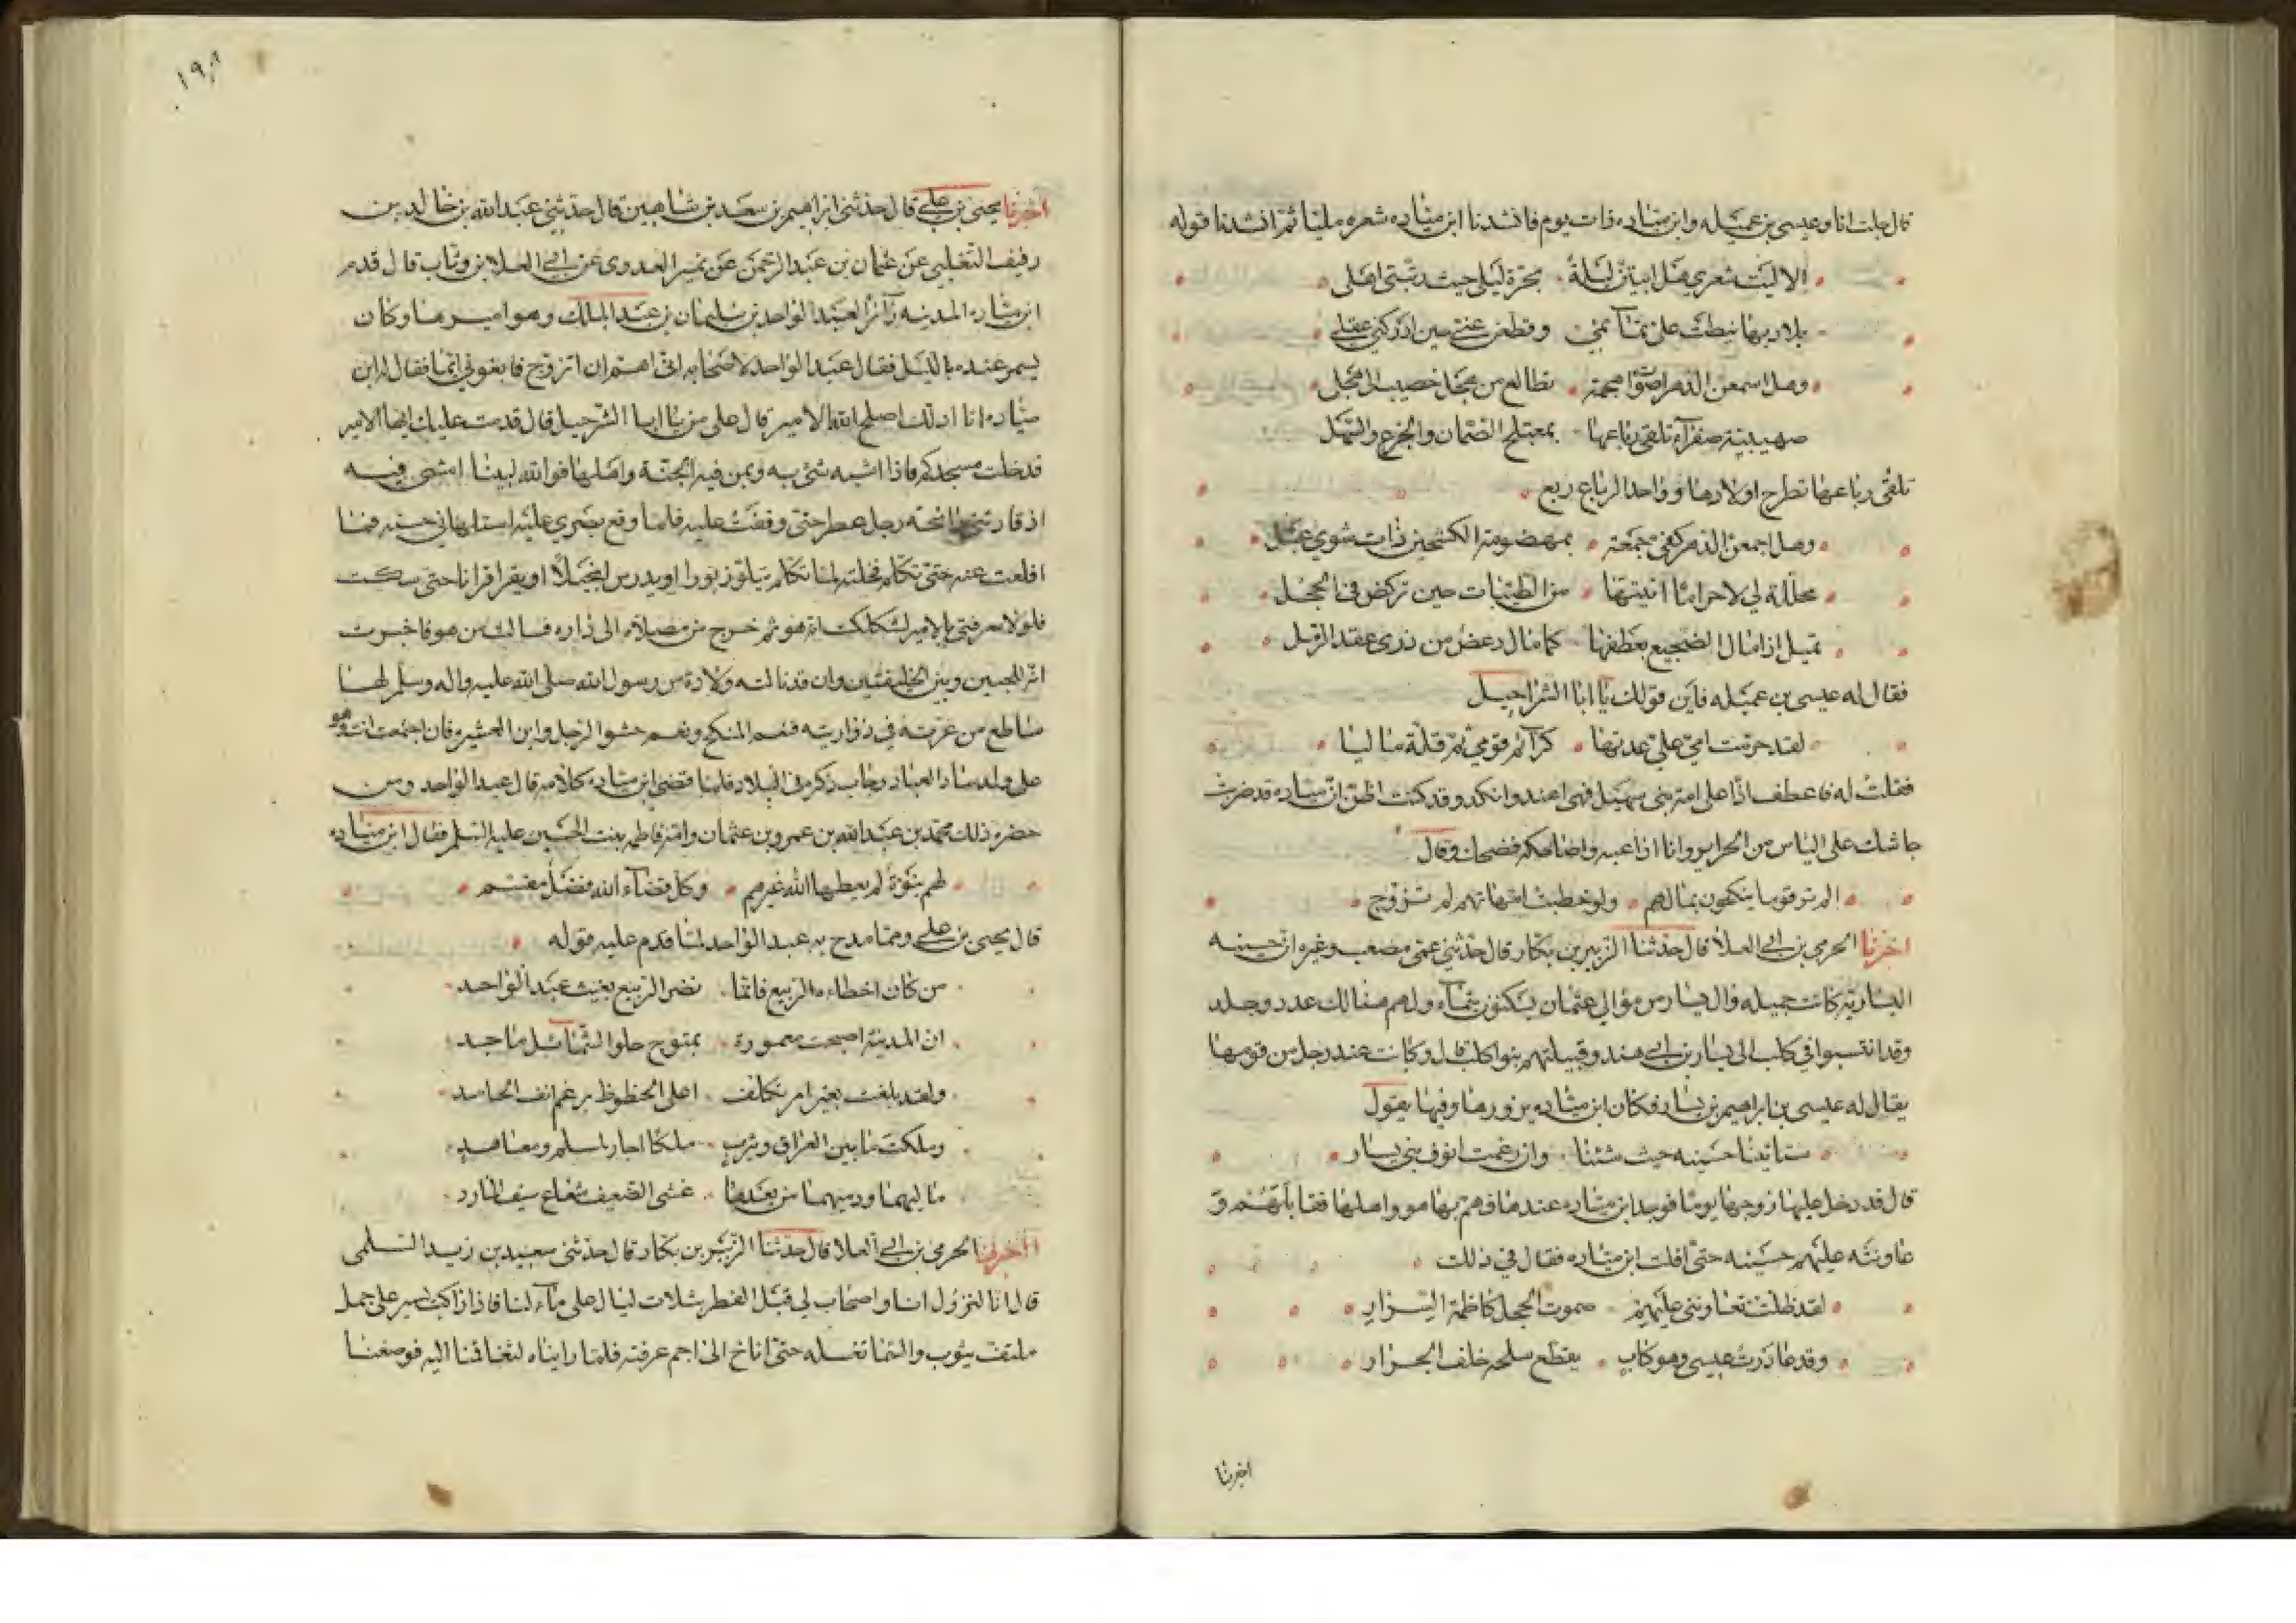 قال جلت انا وعيسى بن عميله وابن مياده ذات يوم فانشدنا ابن مياده شعره مليا ثم انشدنا قوله
الا ليت شعري هل ابيتن ليلة بحرة ليلى حيث ربتني اهلى
بلاد بها نيطت على تمائمي وقطعن عني حين ادركني عقلي
وهل اسمعن الدهر اصوات هجمة تطالع من هجل خصيب الى هجل
صهيبية صفرآء تلقى رباعها بمعتلج الصمان والجزع والسهل
تلقى رباعها تطرح اولادها وواحد الرباع ربع
وهل اجمعن الدهر كفى جمعة بمهضومة الكشحين ذات شوي عبل
محللة لي لا حراما اتيتها من الطيبات حين تركض في الحجل
تميل اذا مال الضجيع بعطفها كما مال دعص من ذرى عقد الرمل
فقال له عيسى بن عميله فاين قولك يا ابا الشراحيل
لقد حرمت امي علي عدمتها كرآئم قومي ثم قلة ماليا
فقلت له فاعطف اذا على امة بني سهيل فهى اعند وانكد وقد كنت اظن ان مياده قد ضربت
جاشك على الياس من الحراير وانا اداعبه واضاحكه فضحك وقال
الم تر قوما ينكحون بمالهم ولو خطبت امهاتهم لم تزوج
اخبرنا الحرمي بن ابي العلا قال حدثنا الزبير بن بكار قال حدثني عمى مصعب وغيره ان حسينه
اليساريه كانت جميله وال يسار من موالي عثمان يسكنون تيماء ولهم هنالك عدد وجلد
وقد انتسبوا في كلب الى يسار بن ابي هند وقبيلتهم بنوا كلب قال وكانت عند رجل من قومها
يقال له عيسى بن ابراهيم بن يسار وكان ابن مياده يزورها وفيها يقول
ستاتينا حسينه حيث شئنا وان رغمت انوف بني يسار
قال قد دخل عليها زوجها يوما فوجد ابن مياده عندها فهم بها هو واهلها فقاتلهم و
عاونته عليهم حسينه حتى افلت ابن مياده فقال في ذلك
لقد ظلت تعاونني عليهم صموت الحجل كاظمة السوار
وقد غادرت عيسى وهو كاب يقطع سلحه خلف الجدار
اخبرنا
١٩٨
اخبرنا يحيى بن علي قال حدثني ابراهيم بن سعد بن شاهين قال حدثني عبد الله بن خالد بن
دفيف التغلبي عن عثمان بن عبد الرحمن عن نمير العدوي عن ابي العلا بن وثاب قال قدم
ابن مياده المدينه زآئرا لعبد الواحد بن سليمان بن عبد الملك وهو اميرها وكان
يسمر عنده بالليل فقال عبد الواحد لاصحابه اني اهم ان اتزوج فابغوني ايما فقال له ابن
مياده انا ادلك اصلح الله الامير قال على من يا ابا الشرحبيل قال قدمت عليك ايها الامير
فدخلت مسجدكم فاذا اشبه شئ به وبمن فيه الجنة واهلها فوالله لبينا امشى فيه
اذ قادتني رائحة رجل عطر حتى وقفت عليه فلما وقع بصري عليه استلهاني حسنه فما
اقلعت عنه حتى تكلم فخلته لما تكلم يتلو زبورا او يدرس انجيلا او يقرا قرانا حتى سكت
فلولا معرفتي بالامير لشككت انه هو ثم خرج من مصلاه الى داره فسالت من هو فاخبرت
انه للحيين وبين الخليفتين وان قد نالته ولادة من رسول الله صلى الله عليه واله وسلم لها
ساطع من غرته في ذؤابته فنعم المنكح ونعم حشو الرجل وابن العشيره فان اجتمعت انت وهو
على ولد ساد العباد وجاب ذكره في البلاد فلما قضى ابن مياده كلامه قال عبد الواحد ومن
حضره ذلك محمد بن عبد الله بن عمرو بن عثمان وامه فاطمه بنت الحسين عليه السلم فقال ابن مياده
لهم نبوة لم يعطها الله غيرهم وكل قضآء الله فضل مقسم
قال يحيى بن علي ومما مدح به عبد الواحد لما قدم عليه قوله
من كان اخطاه الربيع فانما نضر الربيع بغيث عبد الواحد
ان المدينة اصبحت معمورة بمتوج حلو الشمائل ماجد
ولقد بلغت بغير امر تكلف اعلى الحظوظ برغم انف الحاسد
وملكت ما بين العراق ويثرب ملكا اجار لمسلم ومعاهد
ماليهما ودميهما من بعدما غشى الضعيف شعاع سيف المارد
اخبرنا الحرمي بن ابي العلا قال حدثنا الزبير بن بكار قال حدثني سعيد بن زيد السلمى
قال انا لنزول انا واصحاب لي قبل الفطر بثلاث ليال على مآء لنا فاذا راكب يسير على جمل
ملتف بثوب والسما تغسله حتى اناخ الى اجم عرفته فلما رايناه لثقا قمنا اليه فوضعنا